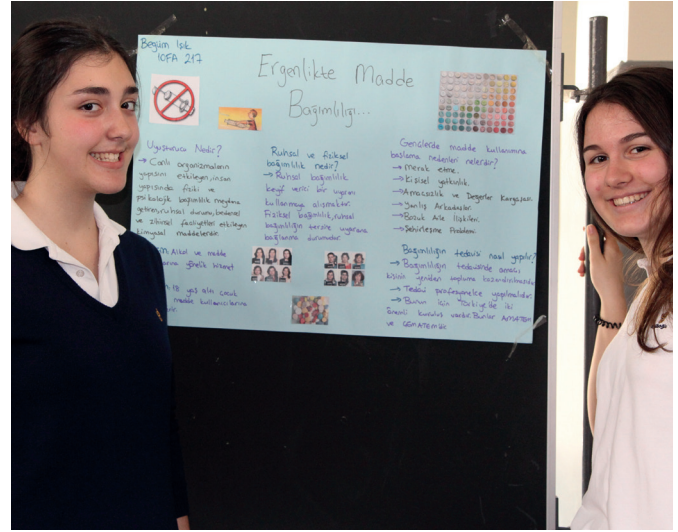 Begüm Işık
10FA 217
Ergenlikte Madde
Bağımlılığı...
Uyuşturucu Nedir?
→ Canlı organizmaların
yapısını etkileyen, insan
yapısında fiziki ve
psikolojik bağımlılık meydana
getiren, ruhsal durumu, bedensel
ve zihinsel faaliyetleri etkileyen
kimyasal maddelerdir.
Alkol ve madde
yönelik hizmet
18 yaş altı çocuk
madde kullanıcılarına
Ruhsal ve fiziksel
bağımlılık nedir?
→ Ruhsal bağımlılık
keyif verici bir uyaran
kullanmaya alışmaktır.
Fiziksel bağımlılık, ruhsal
bağımlılığın tersine uyarana
bağlanma durumudur.
Gençlerde madde kullanımına
başlama nedenleri nelerdir?
→ Merak etme.
→ Kişisel yatkınlık.
→ Amaçsızlık ve Değerler Kargaşası.
→ Yanlış Arkadaşlar.
→ Bozuk Aile İlişkileri.
→ Şehirleşme Problemi.
Bağımlılığın tedavisi nasıl yapılır?
→ Bağımlılığın tedavisinde amaç
kişinin yeniden topluma kazandırılmasıdır
→ Tedavi profesyonelce yapılmalıdır.
→ Bunun için Türkiye'de iki
önemli kuruluş vardır. Bunlar AMATEM
ve ÇEMATEM'dir